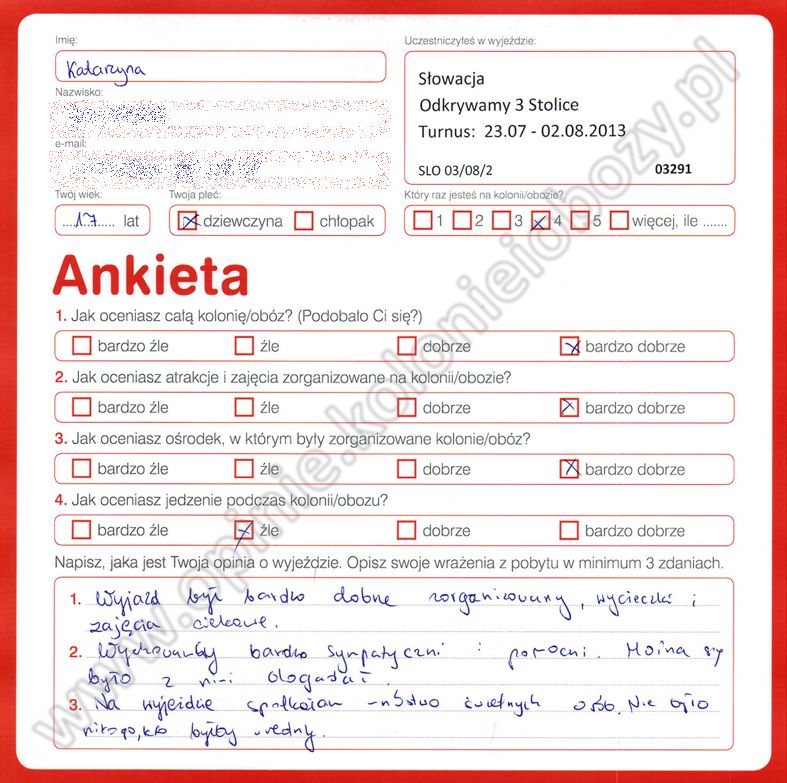 Imię:
Katarzyna
Nazwisko:
e-mail:
Twój wiek:
17 lat
Twoja płeć:
dziewczyna chłopak
Uczestniczyłeś w wyjeździe:
Słowacja
Odkrywamy 3 Stolice
Turnus: 23.07 - 02.08.2013
SLO 03/08/2 03291
Który raz jesteś na kolonii/obozie?
1 2 3 4 5 więcej, ile .......
Ankieta
1. Jak oceniasz całą kolonię/obóz? (Podobało Ci się?)
bardzo źle źle dobrze bardzo dobrze
2. Jak oceniasz atrakcje i zajęcia zorganizowane na kolonii/obozie?
bardzo źle źle dobrze bardzo dobrze
3. Jak oceniasz ośrodek, w którym były zorganizowane kolonie/obóz?
bardzo źle źle dobrze bardzo dobrze
4. Jak oceniasz jedzenie podczas kolonii/obozu?
bardzo źle źle dobrze bardzo dobrze
Napisz, jaka jest Twoja opinia o wyjeździe. Opisz swoje wrażenia z pobytu w minimum 3 zdaniach.
1. Wyjazd był bardzo dobrze zorganizowany, wycieczki i
zajęcia ciekawe.
2. Wychowawcy bardzo sympatyczni i pomocni. Można się
było z nimi dogadać.
3. Na wyjeździe spotkałam mnóstwo świetnych osób. Nie było
nikogo, kto byłby wredny.
www.opinie.kolonieiobozy.pl